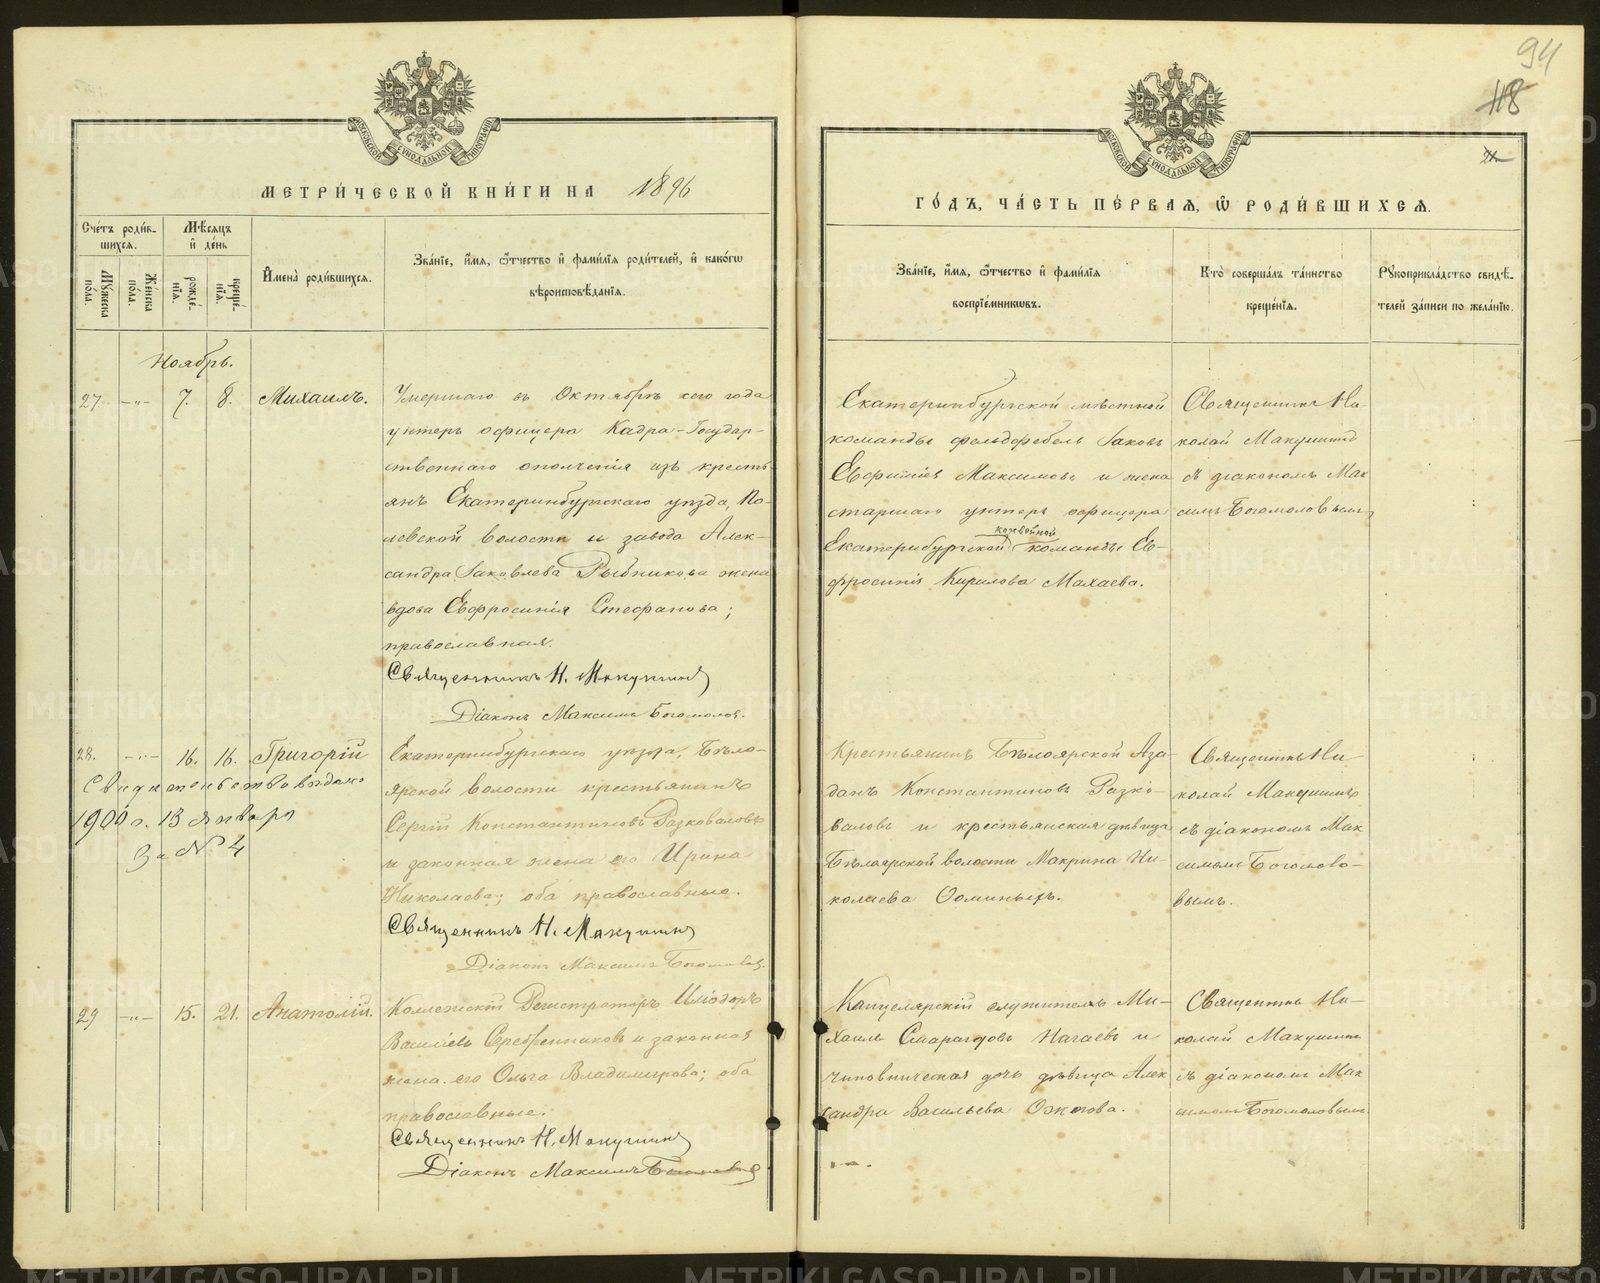 94
118
МОСКОВСКОЙ СѴНОДАЛЬНОЙ ТИПОГРАФІИ
МЕТРИ́ЧЕСКОЙ КНИ́ГИ НА 1896
Сче́тъ роди́в-
шихся.
Мѣ́сяцъ
и҆ де́нь
Мꙋ́жеска
по́ла.
Же́нска
по́ла.
рожде́-
нїѧ.
креще́-
нїѧ.
И҆мена̀ роди́вшихся.
Зва́нїе, и҆́мѧ, ѻ҆́тчество и҆ фами́лїѧ роди́телей, и҆ како́гѡ
вѣроисповѣ́данїѧ.
Ноябрь.
27. -"- 7. 8. Михаилъ.
Умершаго въ Октябрѣ сего года
унтеръ офицера Кадра-Государ-
ственнаго ополченія изъ кресть-
янъ Екатеринбургскаго уѣзда, По-
левской волости и завода Алек-
сандра Іаковлева Рыбникова жена
вдова Евфросинія Стефанова;
православная.
Священникъ Н. Макушинъ
Діаконъ Максимъ Богомоловъ.
28. -"- 16. 16. Григорій
Свидѣтельство выдано
1900 г. 13 января
За № 4
Екатеринбургскаго уѣзда, Бѣло-
ярской волости крестьянинъ
Сергій Константиновъ Разковаловъ
и законная жена его Ирина
Николаева; оба православные.
Священникъ Н. Макушинъ
Діаконъ Максимъ Богомоловъ.
29 -"- 15. 21. Анатолій.
Коллежскій Регистраторъ Иліодоръ
Василіевъ Серебренниковъ и законная
жена его Ольга Владимірова; оба
православные.
Священникъ Н. Макушинъ
Діаконъ Максимъ Богомоловъ
МОСКОВСКОЙ СѴНОДАЛЬНОЙ ТИПОГРАФІИ
ГО́ДЪ, ЧА́СТЬ ПЕ́РВАѦ, Ѡ҆ РОДИ́ВШИХСѦ.
Зва́нїе, и҆́мѧ, ѻ҆́тчество и҆ фами́лїѧ
воспрїе́мникѡвъ.
Кто̀ соверша́лъ та́инство
креще́нїѧ.
Рꙋкоприкла́дство свидѣ́-
телей за́писи по жела́нїю.
Екатеринбургской мѣстной
команды фельдфебель Іаковъ
Евфиміевъ Максимовъ и жена
старшаго унтеръ офицера
конвойной
Екатеринбургской команды Ев-
фросинія Кирилова Махаева.
Священникъ Ни-
колай Макушинъ
съ діакономъ Мак
симъ Богомоловымъ
Крестьянинъ Бѣлоярской Аза-
данъ Константиновъ Разко-
валовъ и крестьянская дѣвица
Бѣлоярской волости Макрина Ни-
колаева Ѳоминыхъ.
Священникъ Ни-
колай Макушинъ
съ діакономъ Мак
симомъ Богомоло-
вымъ.
Канцелярскій служитель Ми-
хаилъ Смарагдовъ Нагаевъ и
чиновническая дочь дѣвица Алек
сандра Васильева Ожгова.
Священникъ Ни-
колай Макушинъ
съ діакономъ Мак
симомъ Богомоловымъ
METRIKI.GASO-URAL.RU